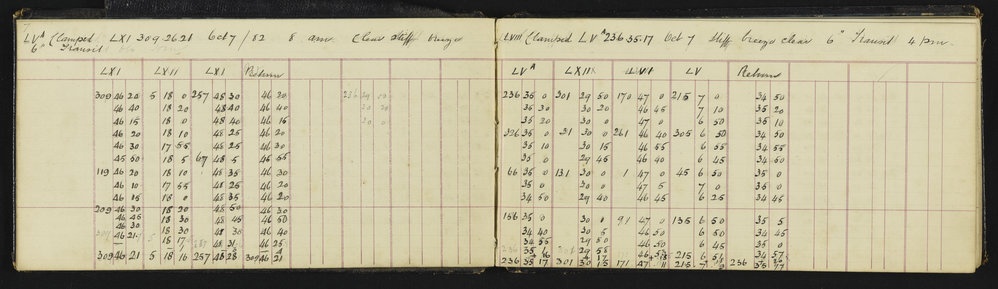 LV^A Clamped LXI 309.26.21 Oct 7 / 82 8 am Clear stiff breeze
6" Transit
LXI LXII LXI Return
309 46 20 5 18 0 257 48 30 46 20 236 29 10
46 40 18 20 48 40 46 40 20 20
46 15 18 0 48 40 46 15 20 0
46 20 18 10 48 25 46 20
46 30 17 55 48 25 46 30
45 50 18 5 67 48 5 46 55
119 46 20 18 10 48 35 46 30
46 10 17 55 48 25 46 20
46 15 18 0 48 35 46 20
209 46 30 18 20 48 50 46 30
46 45 18 30 48 45 46 50
46 30 18 30 48 30 46 40
46 21 5 18 17 48 31 46 25
309 46 21 5 18 16 257 48 28 309 46 21
LVIII Clamped LV^A 236.35.17 Oct 7 stiff breeze clear 6" Transit 4 pm.
LV^A LXII LVI LV Return
236 35 0 301 29 50 170 47 0 215 7 0 34 50
35 30 30 20 46 45 7 10 35 20
35 20 30 0 47 0 6 50 35 10
326 35 0 31 30 0 261 46 40 305 6 50 34 50
35 10 30 15 46 55 6 55 34 55
35 0 29 45 46 40 6 45 34 50
66 35 0 131 30 0 1 47 0 45 6 50 35 0
35 0 30 0 47 5 7 0 35 0
34 50 29 40 46 45 6 25 34 45
156 35 0 30 0 91 47 0 135 6 50 35 5
34 40 30 5 46 50 6 50 34 45
34 55 29 50 46 50 6 45 35 0
236 35 2 301 29 58 46 53 215 6 51 34 57
236 35 17 301 30 15 171 47 11 215 7 9 236 35 17